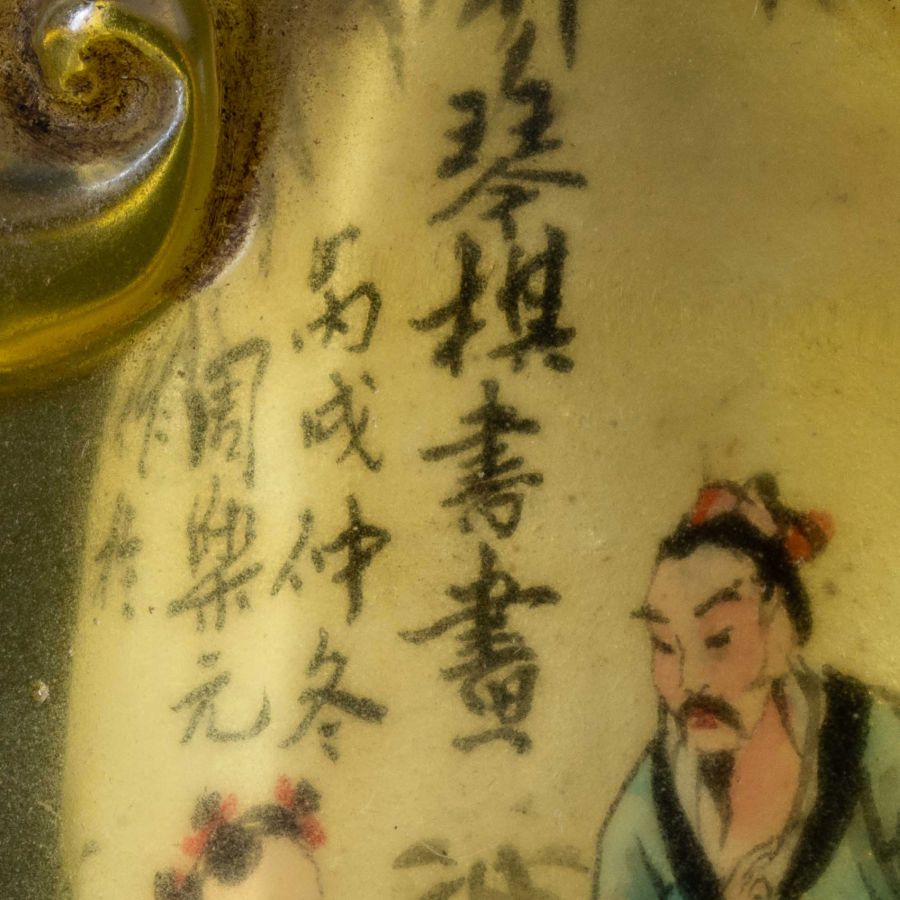 琴棋書畫
丙戌仲冬
周樂元
作於